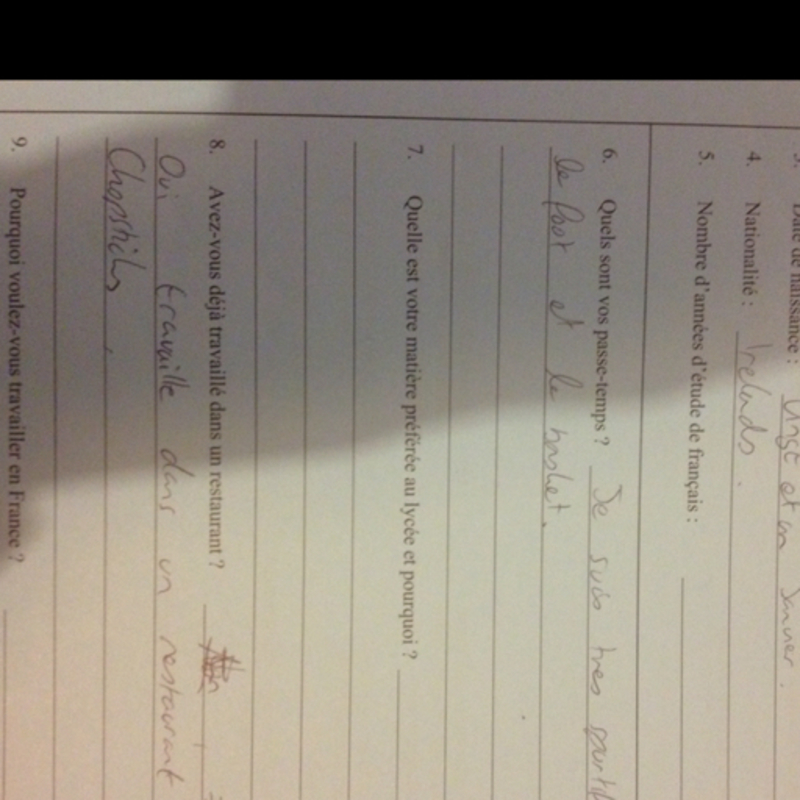 3. Date de naissance : Vingt et un Janvier.
4. Nationalité : Irelands.
5. Nombre d'années d'étude de français :
6. Quels sont vos passe-temps ? Je suis tres sportif
le foot et le basket.
7. Quelle est votre matière préférée au lycée et pourquoi ?
8. Avez-vous déjà travaillé dans un restaurant ?
Oui travaille dans un restaurant
Chopsticks,
9. Pourquoi voulez-vous travailler en France ?